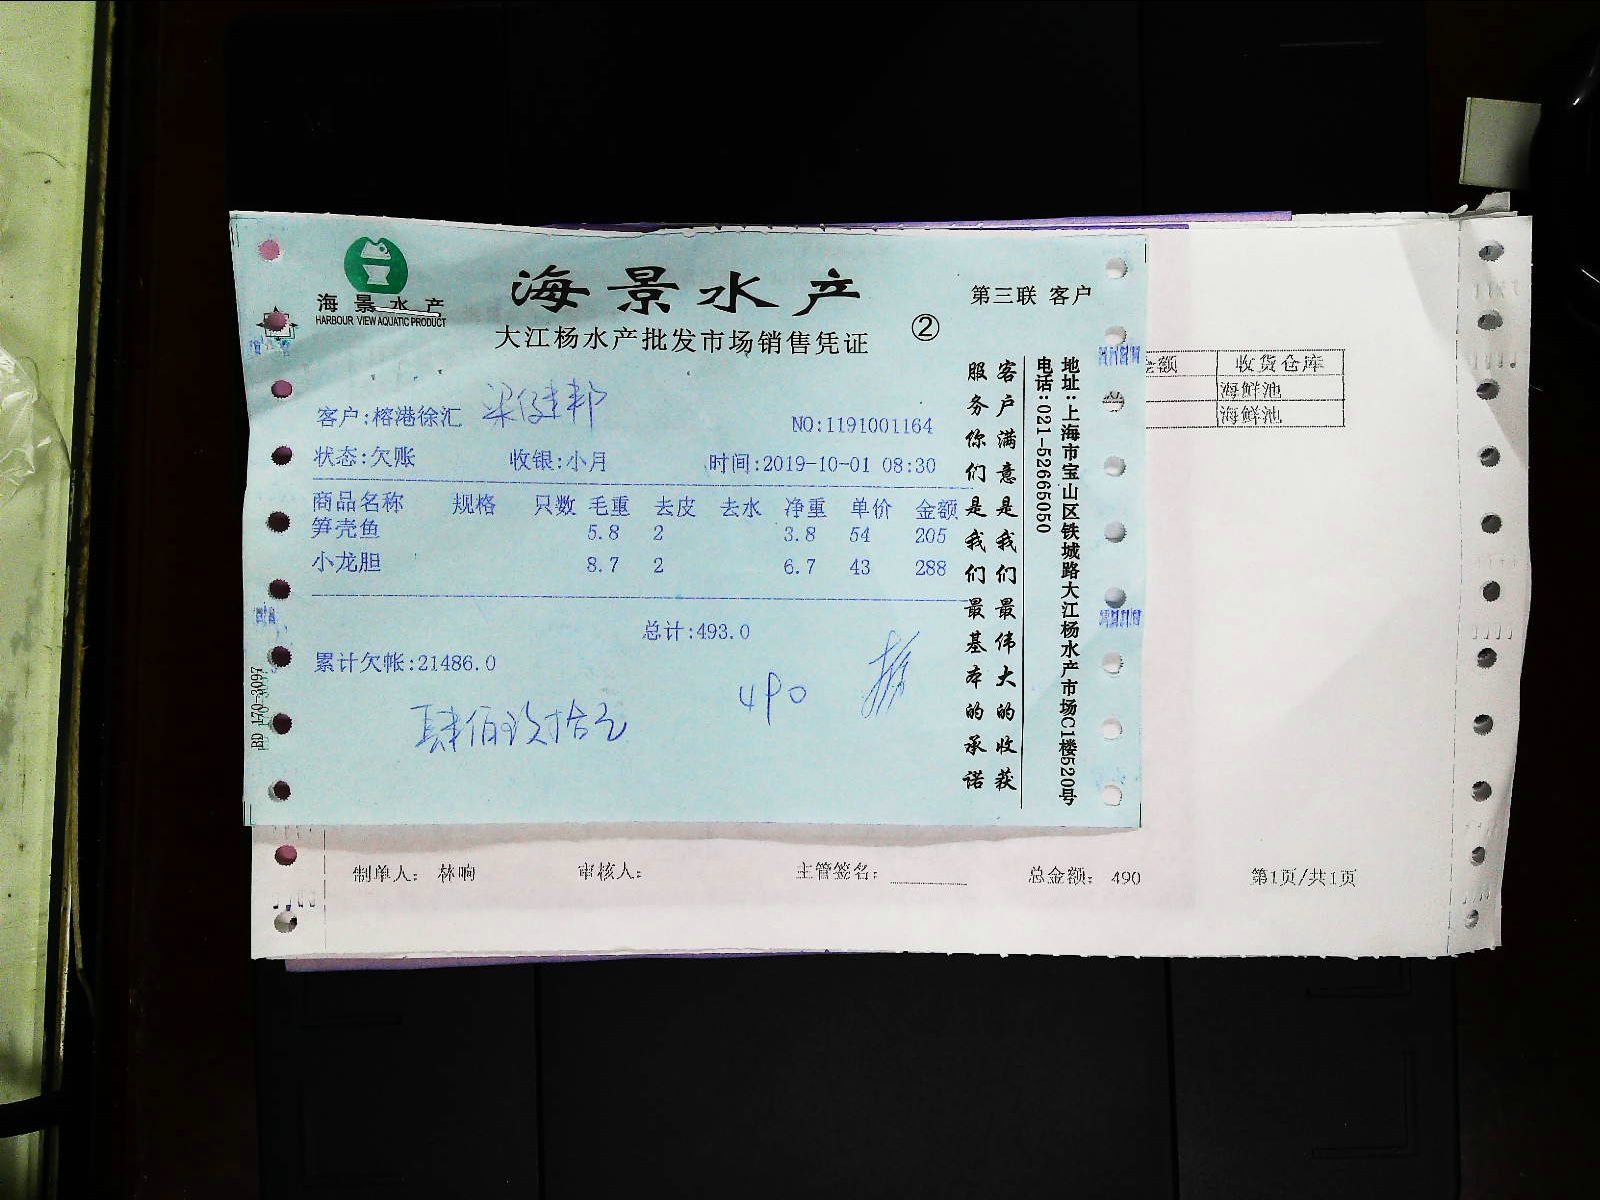 海景水产
HARBOUR VIEW AQUATIC PRODUCT
海景水产
大江杨水产批发市场销售凭证
②
第三联 客户
客户:榕港徐汇 梁健邦
NO:1191001164
状态:欠账 收银:小月 时间:2019-10-01 08:30
商品名称 规格 只数 毛重 去皮 去水 净重 单价 金额
笋壳鱼 5.8 2 3.8 54 205
小龙胆 8.7 2 6.7 43 288
总计:493.0
累计欠帐:21486.0
490
肆佰玖拾元
客户满意是我们最伟大的收获
服务你们是我们最基本的承诺
地址:上海市宝山区铁城路大江杨水产市场C1楼520号
电话:021-52665050
BD 170-3097
金额 收货仓库
海鲜池
海鲜池
制单人: 林响 审核人: 主管签名: 总金额: 490 第1页/共1页